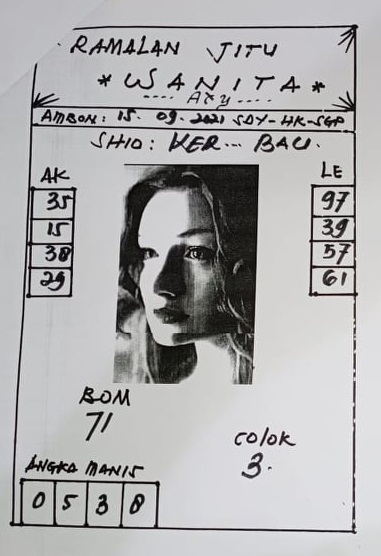 RAMALAN JITU
* WANITA *
---- Axy ----
AMBON: 15. 09. 2021 SDY-HK-SGP
SHIO: KER... BAU.
AK
35
15
38
29
LE
97
39
57
61
BOM
71
COLOK
3.
ANGKA MANIS
0 5 3 8